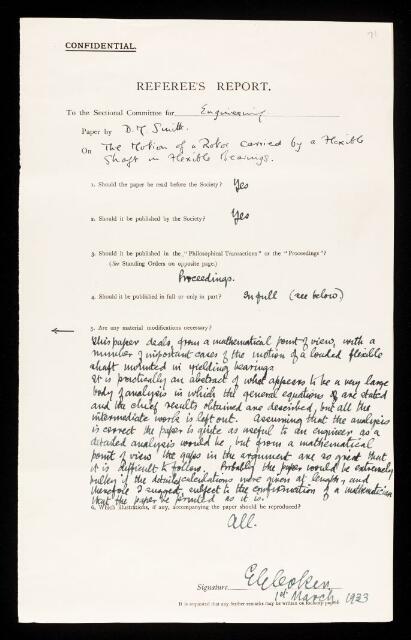 71
CONFIDENTIAL.
REFEREE'S REPORT.
To the Sectional Committee for Engineering
Paper by D. M. Smith.
On The Motion of a Rotor carried by a Flexible
Shaft in Flexible Bearings.
1. Should the paper be read before the Society? Yes
2. Should it be published by the Society? Yes
3. Should it be published in the "Philosophical Transactions" or the "Proceedings"?
(See Standing Orders on opposite page.)
Proceedings.
4. Should it be published in full or only in part? In full (see below)
5. Are any material modifications necessary?
This paper deals from a mathematical point of view, with a
number of important cases of the motion of a loaded flexible
shaft mounted in yielding bearings
It is practically an abstract of what appears to be a very large
body of analysis in which the general equations are stated
and the chief results obtained are described, but all the
intermediate work is left out. Assuming that the analysis
is correct the paper is quite as useful to an engineer as a
detailed analysis would be, but from a mathematical
point of view the gaps in the argument are so great that
it is difficult to follow. Probably the paper would be extremely
bulky if the detailed calculations were given at length, and
therefore I suggest, subject to the confirmation of a mathematician
that the paper be printed as it is.
6. Which illustrations, if any, accompanying the paper should be reproduced?
All.
Signature E G Coker
1st March 1923
It is requested that any further remarks may be written on